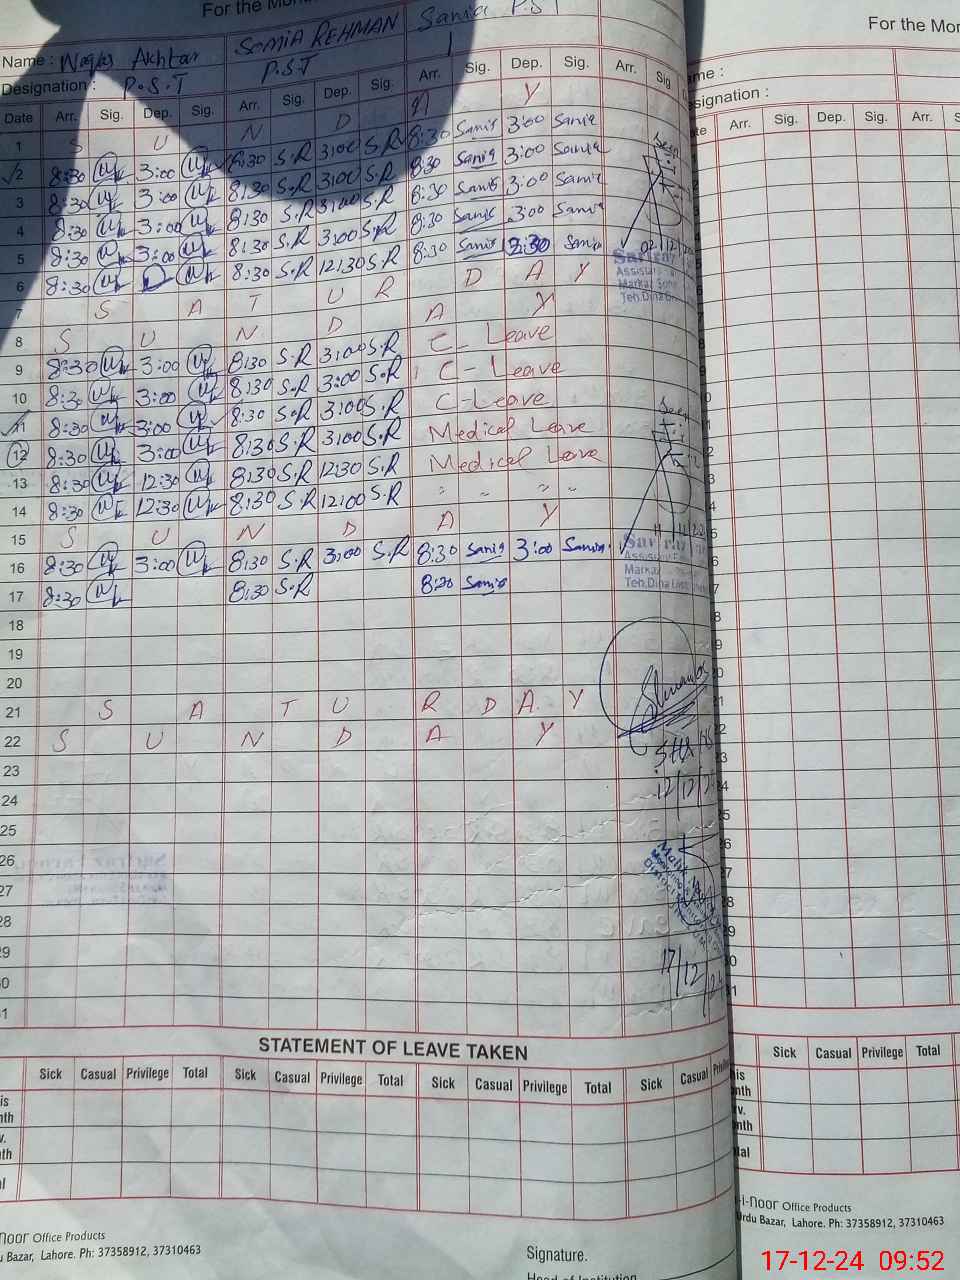 For the Mon
For the Mor
Name : Akhtar SOMIA REHMAN Sania P.S.T
Designation : P.S.T P.S.T
Date Arr. Sig. Dep. Sig. Arr. Sig. Dep. Sig. Arr. Sig. Dep. Sig. Arr. Sig
me :
signation :
te Arr. Sig. Dep. Sig. Arr. Sig.
1 S U N D A Y
2 8:30 3:00 8:30 S.R 3:00 S.R 8:30 Sania 3:00 Sania
3 8:30 3:00 8:30 S.R 3:00 S.R 8:30 Sania 3:00 Sania
4 8:30 3:00 8:30 S.R 3:00 S.R 8:30 Sania 3:00 Sania
5 8:30 3:00 8:30 S.R 3:00 S.R 8:30 Sania 3:00 Sania
6 8:30 8:30 S.R 12:30 S.R 8:30 Sania Sania
7 S A T U R D A Y
8 S U N D A Y
9 8:30 3:00 8:30 S.R 3:00 S.R C- Leave
10 8:30 3:00 8:30 S.R 3:00 S.R C- Leave
11 8:30 3:00 8:30 S.R 3:00 S.R C-Leave
12 8:30 3:00 8:30 S.R 3:00 S.R Medical Leave
13 8:30 12:30 8:30 S.R 12:30 S.R Medical Leave
14 8:30 12:30 8:30 S.R 12:00 S.R " " " "
15 S U N D A Y
16 8:30 3:00 8:30 S.R 3:00 S.R 8:30 Sania 3:00 Sania
17 8:30 8:30 S.R 8:30 Sania
18
19
20
21 S A T U R D A Y
22 S U N D A Y
23
24
25
26
27
28
29
30
31
Seen
Markaz
Teh.Dina
Seen
Teh.Dina
12/12/2
17/12/24
STATEMENT OF LEAVE TAKEN
Sick Casual Privilege Total Sick Casual Privilege Total Sick Casual Privilege Total Sick Casual Privile
is
nth
v.
th
l
Sick Casual Privilege Total Sick
his
nth
v.
nth
tal
noor Office Products
u Bazar, Lahore. Ph: 37358912, 37310463
Signature.
Head of Institution
-i-noor Office Products
Urdu Bazar, Lahore. Ph: 37358912, 37310463
17-12-24 09:52